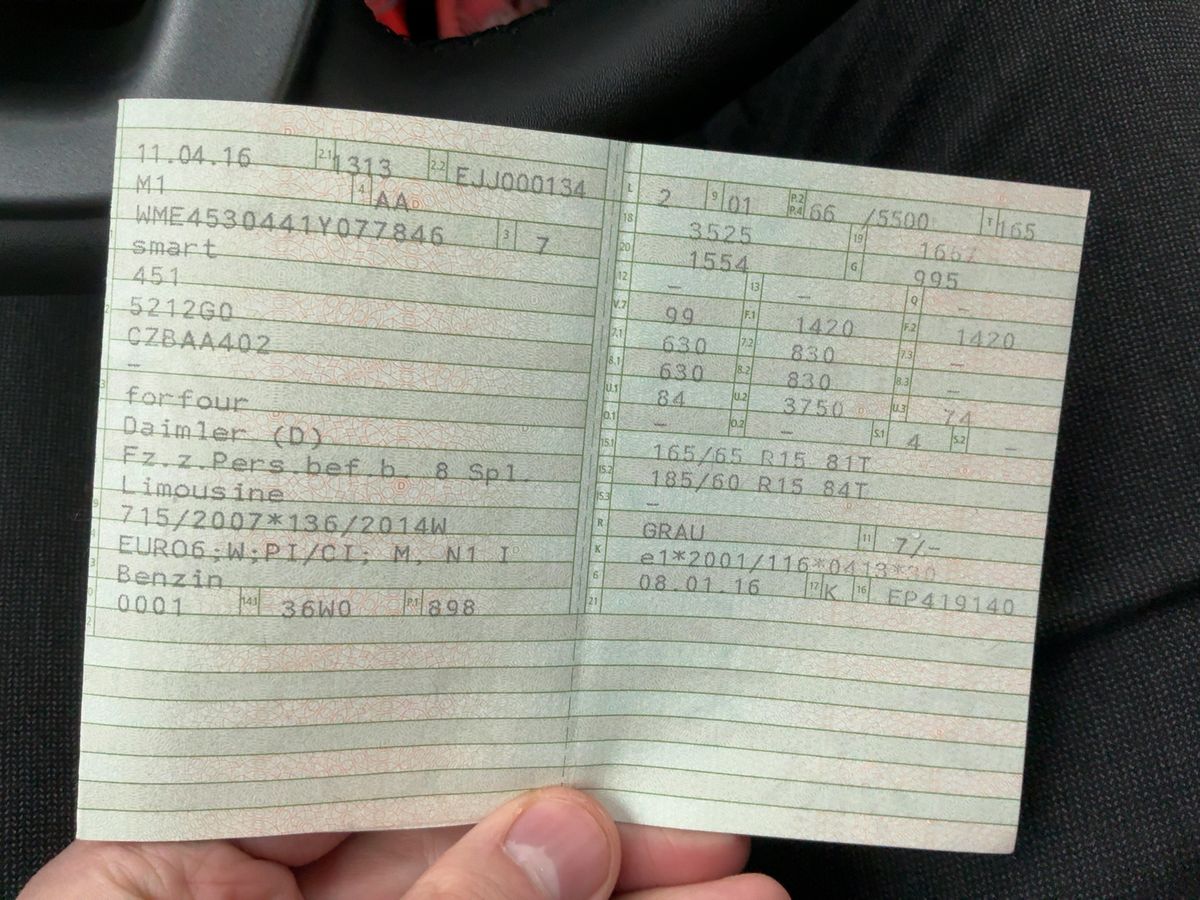 11.04.16 2.1 1313 2.2 EJJ000134
M1 4 AA
WME4530441Y077846 3 7
smart
451
5212G0
CZBAA402
–
forfour
Daimler (D)
Fz.z.Pers.bef.b. 8 Spl.
Limousine
715/2007*136/2014W
EURO6;W;PI/CI; M, N1 I
Benzin
0001 14.1 36W0 P.1 898
L 2 9 01 P.2 P.4 66 /5500 T 165
18 3525 19
20 1554 G 995
12 – 13 – Q –
V.7 99 F.1 1420 F.2 1420
7.1 630 7.2 830 7.3 –
8.1 630 8.2 830 8.3 –
U.1 84 U.2 3750 U.3 74
O.1 – O.2 – S.1 4 S.2 –
15.1 165/65 R15 81T
15.2 185/60 R15 84T
15.3 –
R GRAU 11 7/-
K e1*2001/116*0413*30
6 08.01.16 17 K 16 EP419140
21